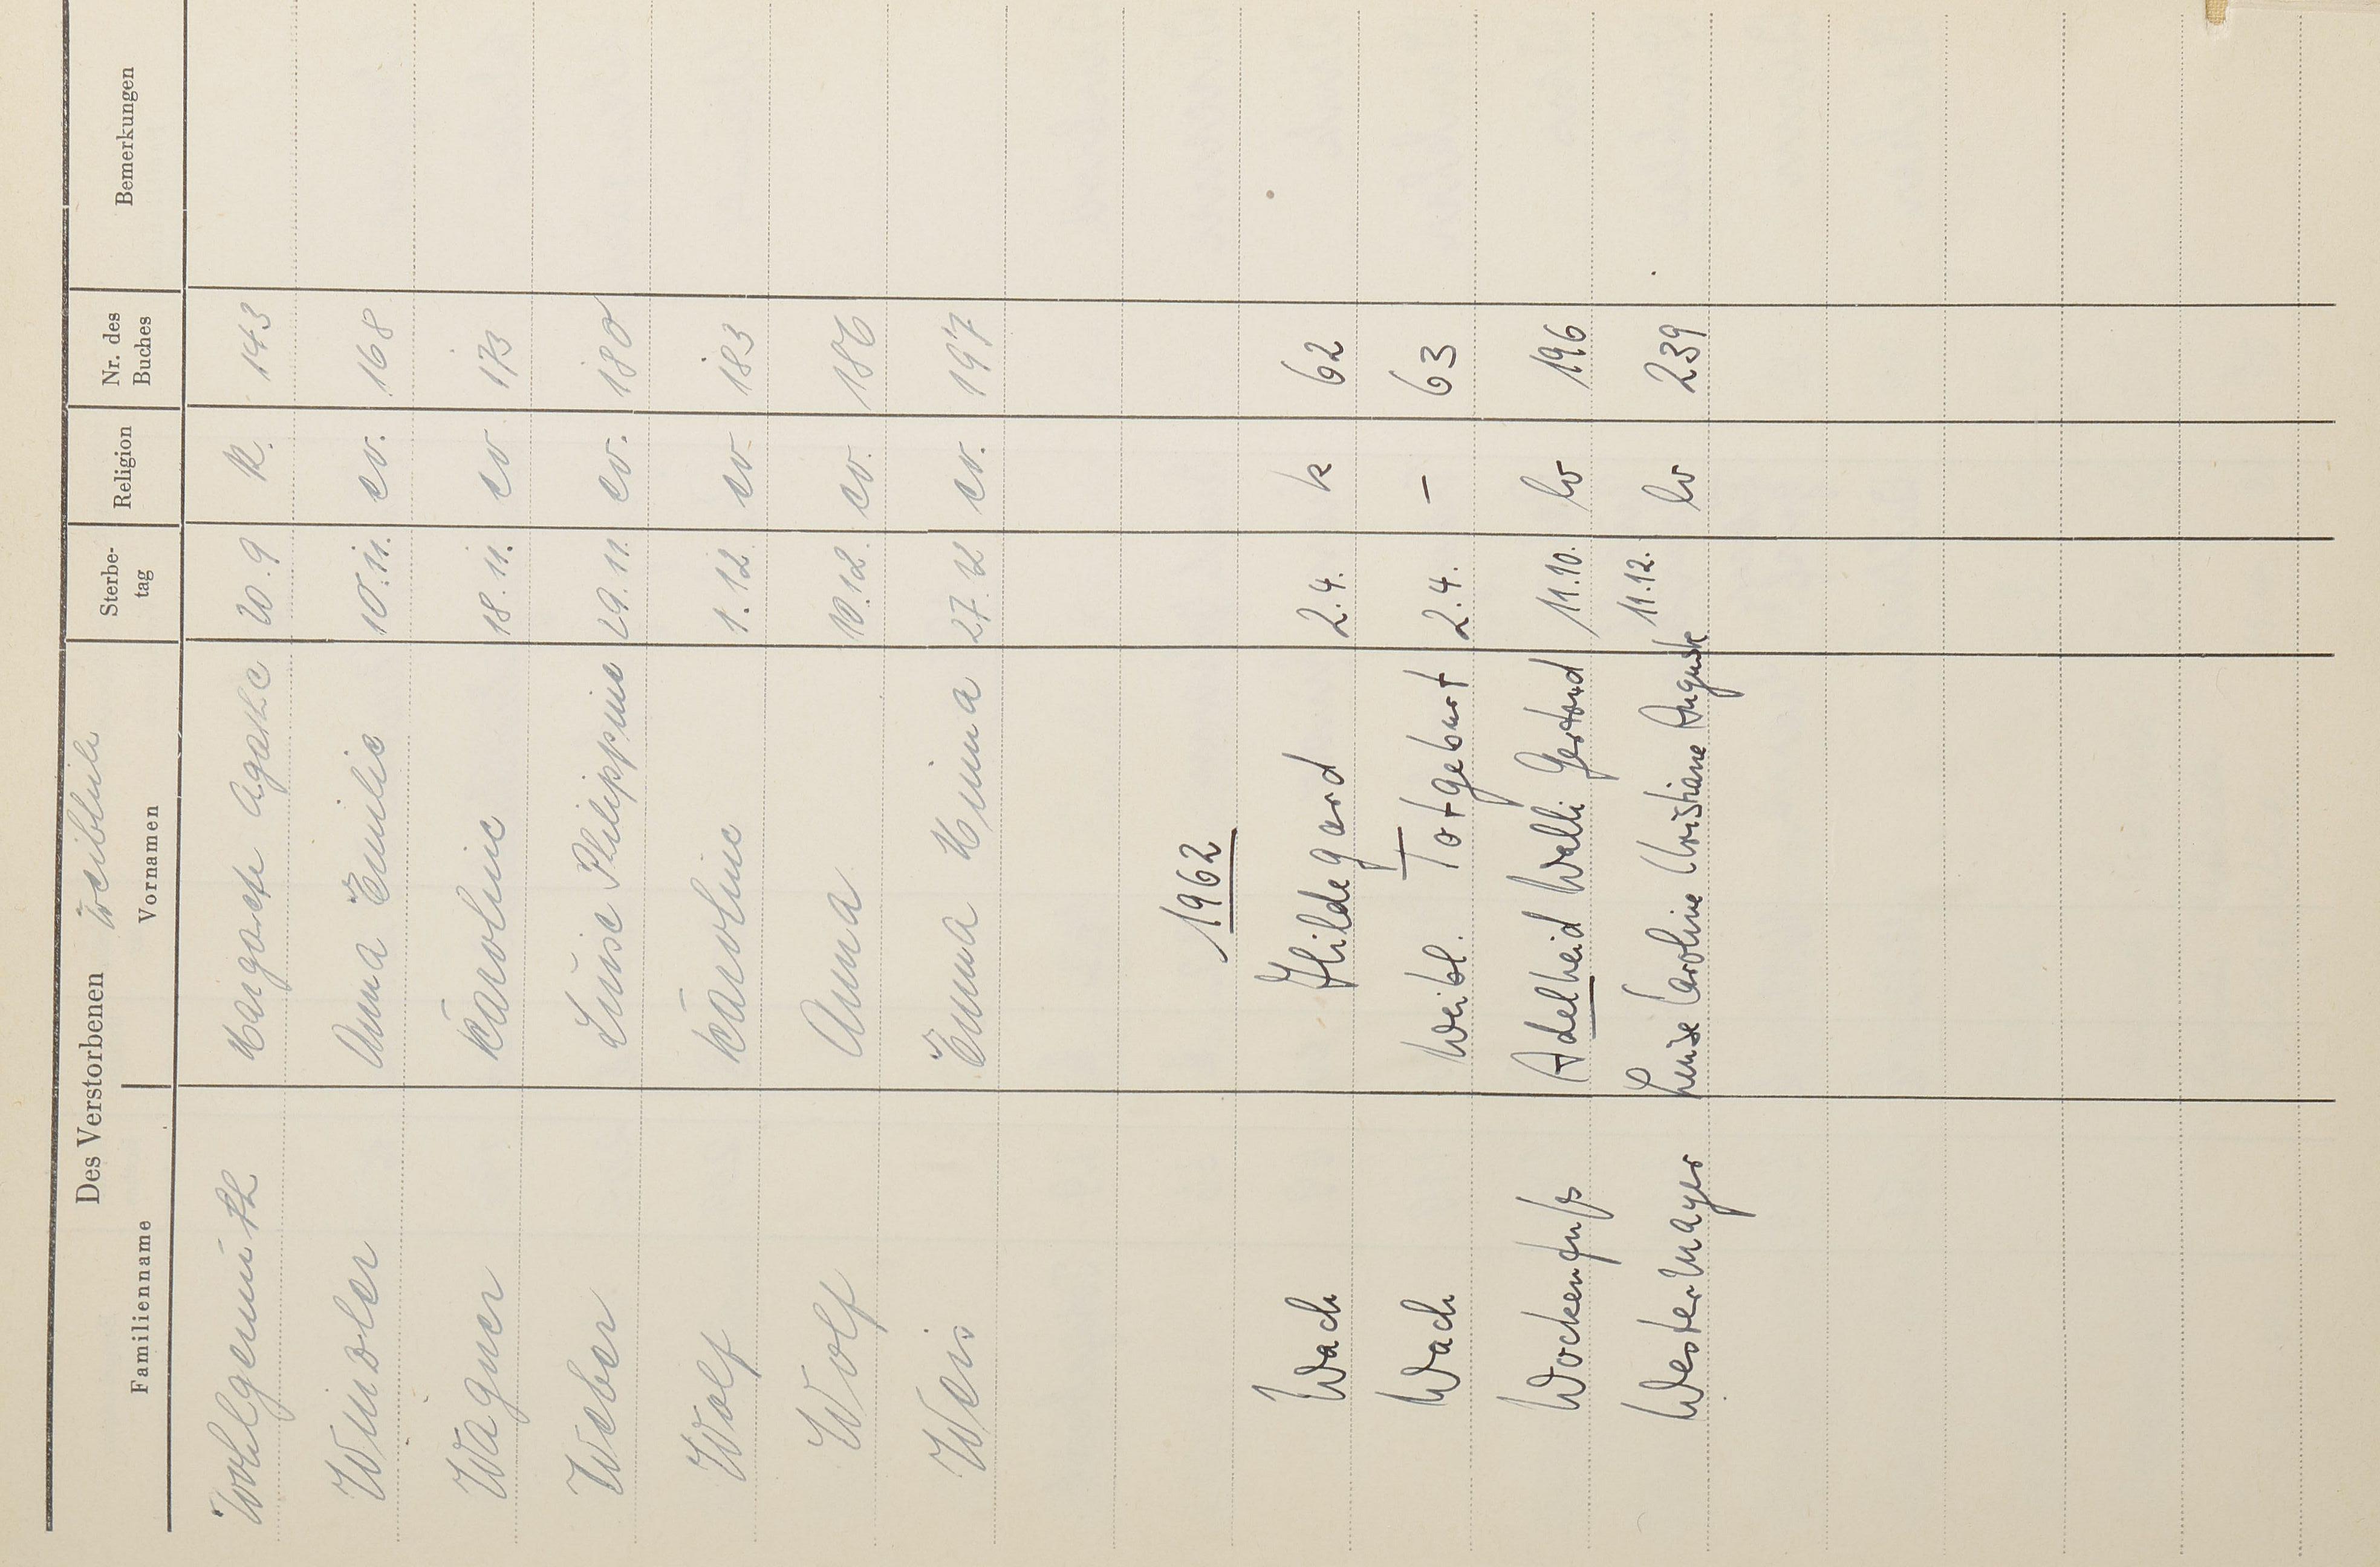 Des Verstorbenen weibliche
Familienname Vornamen Sterbe-tag Religion Nr. des Buches Bemerkungen
Wohlgemuth Margarete Agathe 20.9 k. 143
Anna Emilie 10.11. ev. 168
Wagner Karoline 18.11. ev 173
Weber Luise Philippine 29.11. ev. 180
Wolf Karoline 1.12. ev 183
Wolf Anna 10.12. ev. 186
Weis Emma Minna 27.12 ev. 197
1962
Wach Hildegard 2.4. k 62
Wach weibl. Totgeburt 2.4. – 63
Wockenfuß Adelheid Walli Gertrud 11.10. ev 196
Westermayer Luise Caroline Christiane Auguste 11.12. ev 239